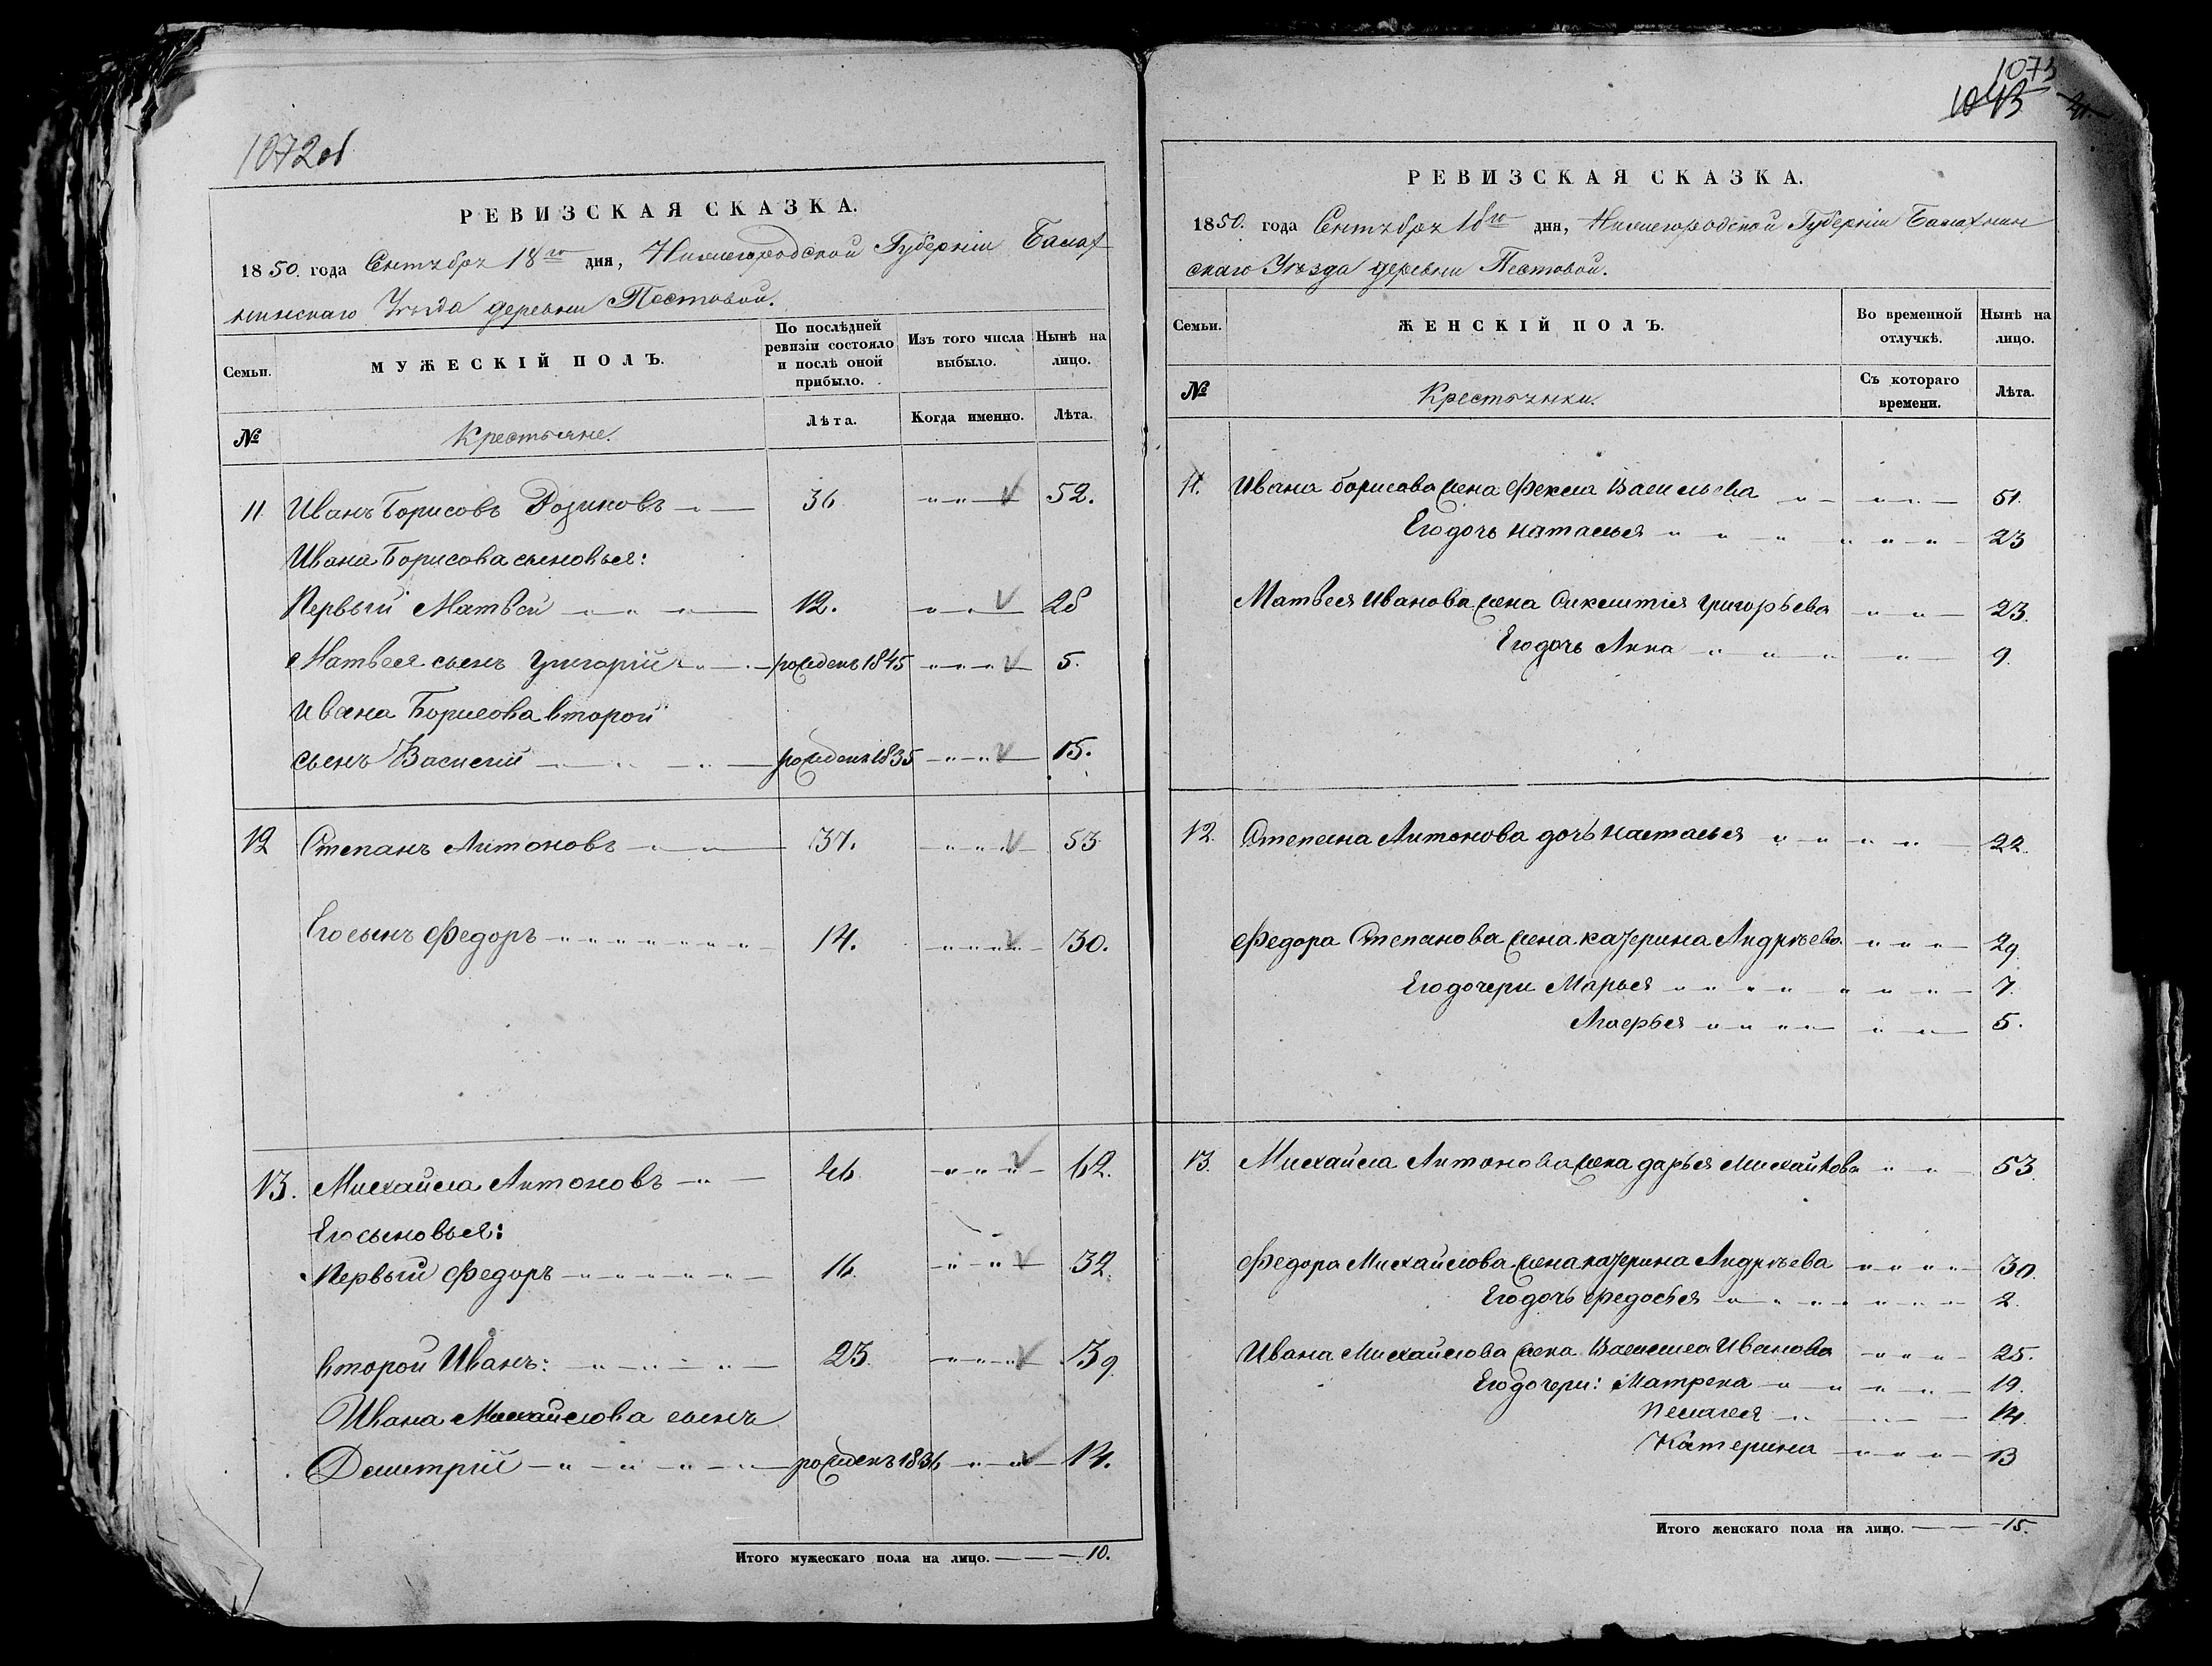 1072об
РЕВИЗСКАЯ СКАЗКА.
1850. года Сентября 18го дня, Нижегородской Губерніи Балах
нинскаго Уѣзда деревни Пестовой.
Семьи. МУЖЕСКІЙ ПОЛЪ. По послѣдней ревизіи состояло и послѣ оной прибыло. Изъ того числа выбыло. Нынѣ на лицо.
№ Крестьяне. Лѣта. Когда именно. Лѣта.
11 Иванъ Борисовъ 36 52.
Ивана Борисова сыновья:
Первый Матвей 12. 28
Матвея сынъ Григорій рожденъ 1845 5.
Ивана Борисова второй
сынъ Василий рожденъ 1835 15.
12 Степанъ Антоновъ 37. 53
Его сынъ Федоръ 14. 30.
13. Михайла Антоновъ 46 62.
Его сыновья:
Первый Федоръ 16. 32.
второй Иванъ: 23. 39
Ивана Михайлова сынъ
Дмитрій рожденъ 1836 14.
Итого мужескаго пола на лицо. 10.
1073
РЕВИЗСКАЯ СКАЗКА.
1850. года Сентября 18го дня, Нижегородской Губерніи Балахнин
скаго Уѣзда деревни Пестовой.
Семьи. ЖЕНСКІЙ ПОЛЪ. Во временной отлучкѣ. Нынѣ на лицо.
№ Крестьянки. Съ котораго времени. Лѣта.
11. Ивана Борисова жена Фекла Васильева 51.
Его дочь Наталья 23
Матвея Иванова жена Григорьева 23.
Его дочь Анна 9.
12. Степана Антонова дочь Настасья 22.
Федора Степанова жена Катерина Андрѣева 29.
Его дочери Марья 7.
5.
13. Михайла Антонова жена Дарья Михайлова 53.
Федора Михайлова жена Катерина Андрѣева 30.
Его дочь Федосья 2.
Ивана Михайлова жена Василиса Иванова 25.
Его дочери: Матрена 19.
Пелагея 14.
Катерина 13
Итого женскаго пола на лицо. 15.